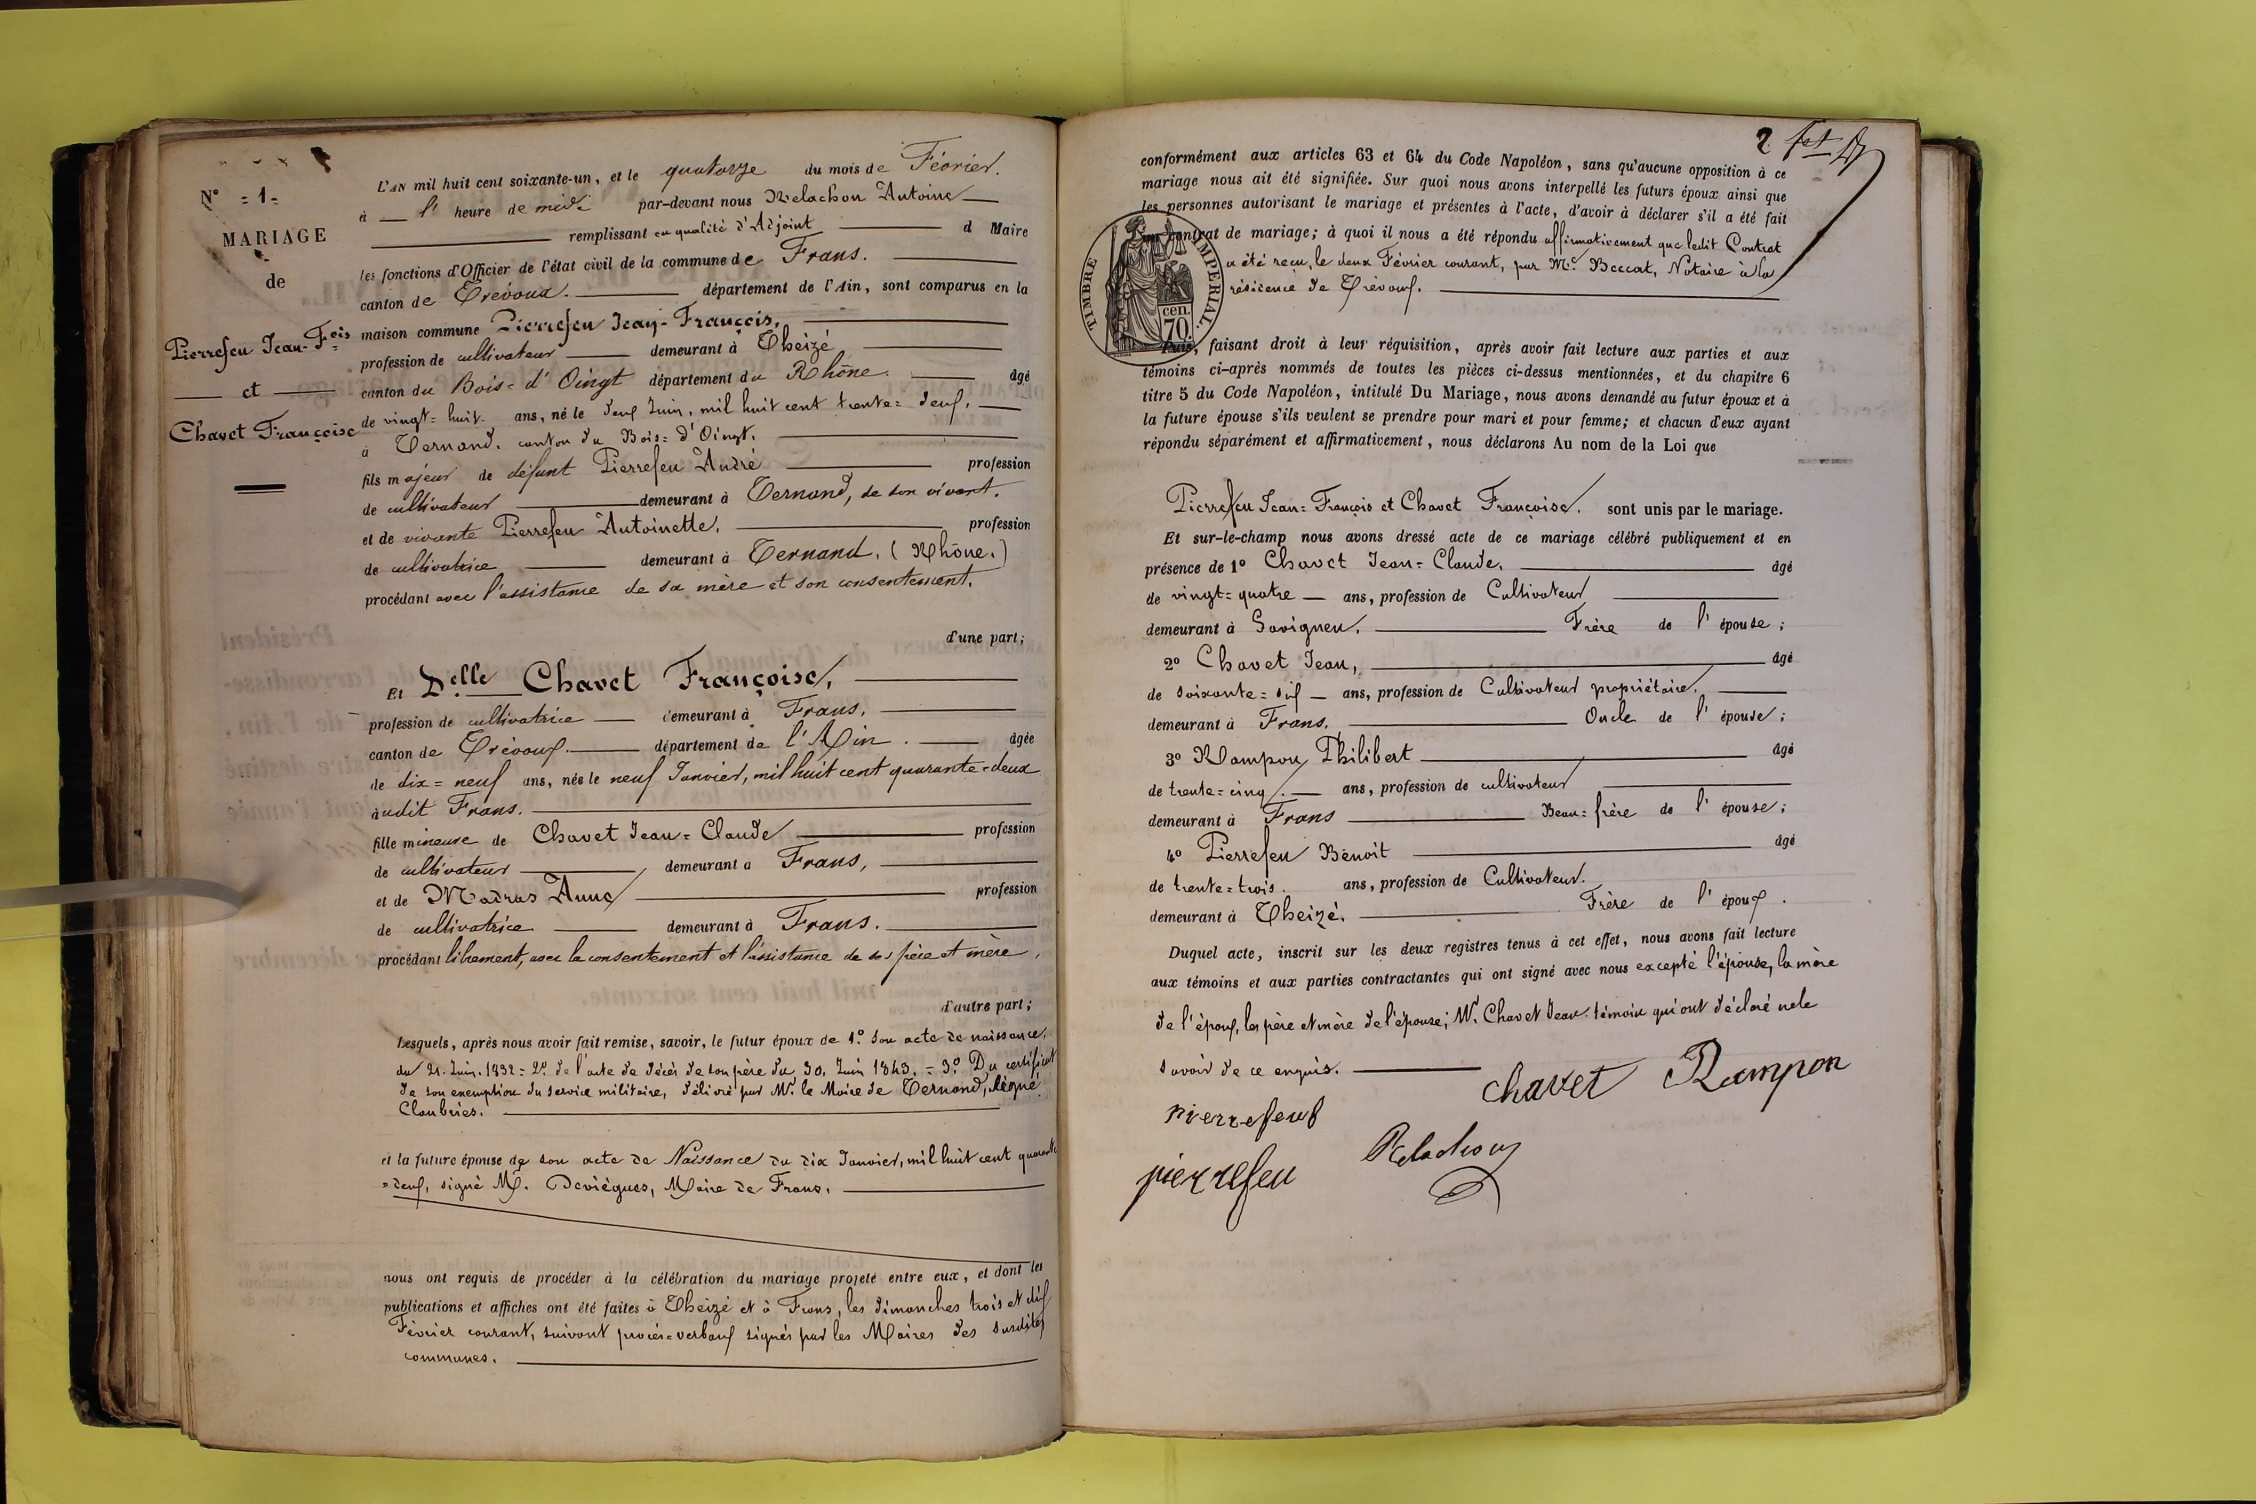 N° = 1 =
MARIAGE
de
Pierrefeu Jean-Fçois
et
Chavet Françoise
L'AN mil huit cent soixante-un, et le quatorze du mois de Février.
à l' heure de midi par-devant nous Relachon Antoine
remplissant en qualité d'Adjoint d Maire
les fonctions d'Officier de l'état civil de la commune de Frans.
canton de Trévoux. département de l'Ain, sont comparus en la
maison commune Pierrefeu Jean-François,
profession de cultivateur demeurant à Theizé
canton du Bois=d'Oingt département du Rhône. âgé
de vingt=huit ans, né le deux Juin, mil huit cent trente=deux,
à Ternand, canton du Bois=d'Oingt.
fils majeur de défunt Pierrefeu André profession
de cultivateur demeurant à Ternand, de son vivant.
et de vivante Pierrefeu Antoinette, profession
de cultivatrice demeurant à Ternand, (Rhône.)
procédant avec l'assistance de sa mère et son consentement.
d'une part;
Et Delle Chavet Françoise,
profession de cultivatrice demeurant à Frans,
canton de Trévoux. département de l'Ain. âgée
de dix=neuf ans, née le neuf Janvier, mil huit cent quarante=deux
audit Frans.
fille mineure de Chavet Jean=Claude profession
de cultivateur demeurant a Frans,
et de Madras Anne profession
de cultivatrice demeurant à Frans.
procédant librement, avec le consentement et l'assistance de ses père et mère,
d'autre part;
Lesquels, après nous avoir fait remise, savoir, le futur époux de 1°. Son acte de naissance,
du 21. Juin. 1832 = 2°. de l'acte de décès de son père du 30. Juin 1843. = 3°. Du certificat
de son exemption du service militaire, délivré par Mr. le Maire de Ternand, signé
et la future épouse de son acte de Naissance du dix Janvier, mil huit cent quarante
=deux, signé M. Maire de Frans.
nous ont requis de procéder à la célébration du mariage projeté entre eux, et dont les
publications et affiches ont été faites à Theizé et à Frans, les dimanches trois et dix
Février courant, suivant procès=verbaux signés par les Maires des susdites
communes.
2
conformément aux articles 63 et 64 du Code Napoléon, sans qu'aucune opposition à ce
mariage nous ait été signifiée. Sur quoi nous avons interpellé les futurs époux ainsi que
les personnes autorisant le mariage et présentes à l'acte, d'avoir à déclarer s'il a été fait
un contrat de mariage; à quoi il nous a été répondu affirmativement que ledit Contrat
a été reçu, le deux Février courant, par Me. Beccat, Notaire à la
résidence de Trévoux.
TIMBRE IMPÉRIAL.
cen.
70
Puis, faisant droit à leur réquisition, après avoir fait lecture aux parties et aux
témoins ci-après nommés de toutes les pièces ci-dessus mentionnées, et du chapitre 6
titre 5 du Code Napoléon, intitulé Du Mariage, nous avons demandé au futur époux et à
la future épouse s'ils veulent se prendre pour mari et pour femme; et chacun d'eux ayant
répondu séparément et affirmativement, nous déclarons Au nom de la Loi que
Pierrefeu Jean=François et Chavet Françoise. sont unis par le mariage.
Et sur-le-champ nous avons dressé acte de ce mariage célébré publiquement et en
présence de 1° Chavet Jean=Claude, âgé
de vingt=quatre ans, profession de Cultivateur
demeurant à Savigneu, Frère de l'épouse;
2° Chavet Jean, âgé
de soixante=six ans, profession de Cultivateur propriétaire,
demeurant à Frans, Oncle de l'épouse;
3° Rampon Philibert âgé
de trente=cinq ans, profession de cultivateur
demeurant à Frans Beau=frère de l'épouse;
4° Pierrefeu Bénoit âgé
de trente=trois. ans, profession de Cultivateur.
demeurant à Theizé. Frère de l'époux.
Duquel acte, inscrit sur les deux registres tenus à cet effet, nous avons fait lecture
aux témoins et aux parties contractantes qui ont signé avec nous excepté l'épouse, la mère
de l'époux, les père et mère de l'épouse; Mr. Chavet Jean témoin qui ont déclaré ne le
savoir de ce enquis.
chavet Rampon
pierrefeux
Relachon
pierrefeu